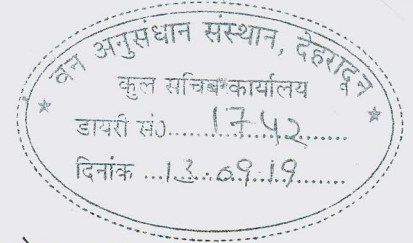 वन अनुसंधान संस्थान, देहरादून
कुल सचिव कार्यालय
डायरी सं0.....1742.......
दिनांक ...13.09.19.......